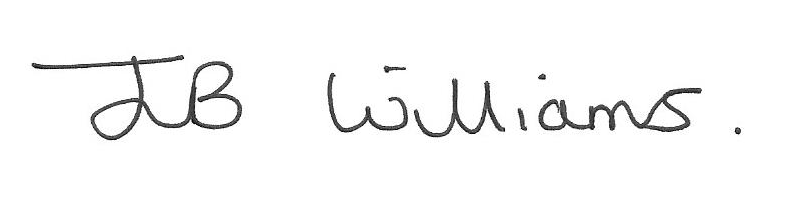 JB Williams.